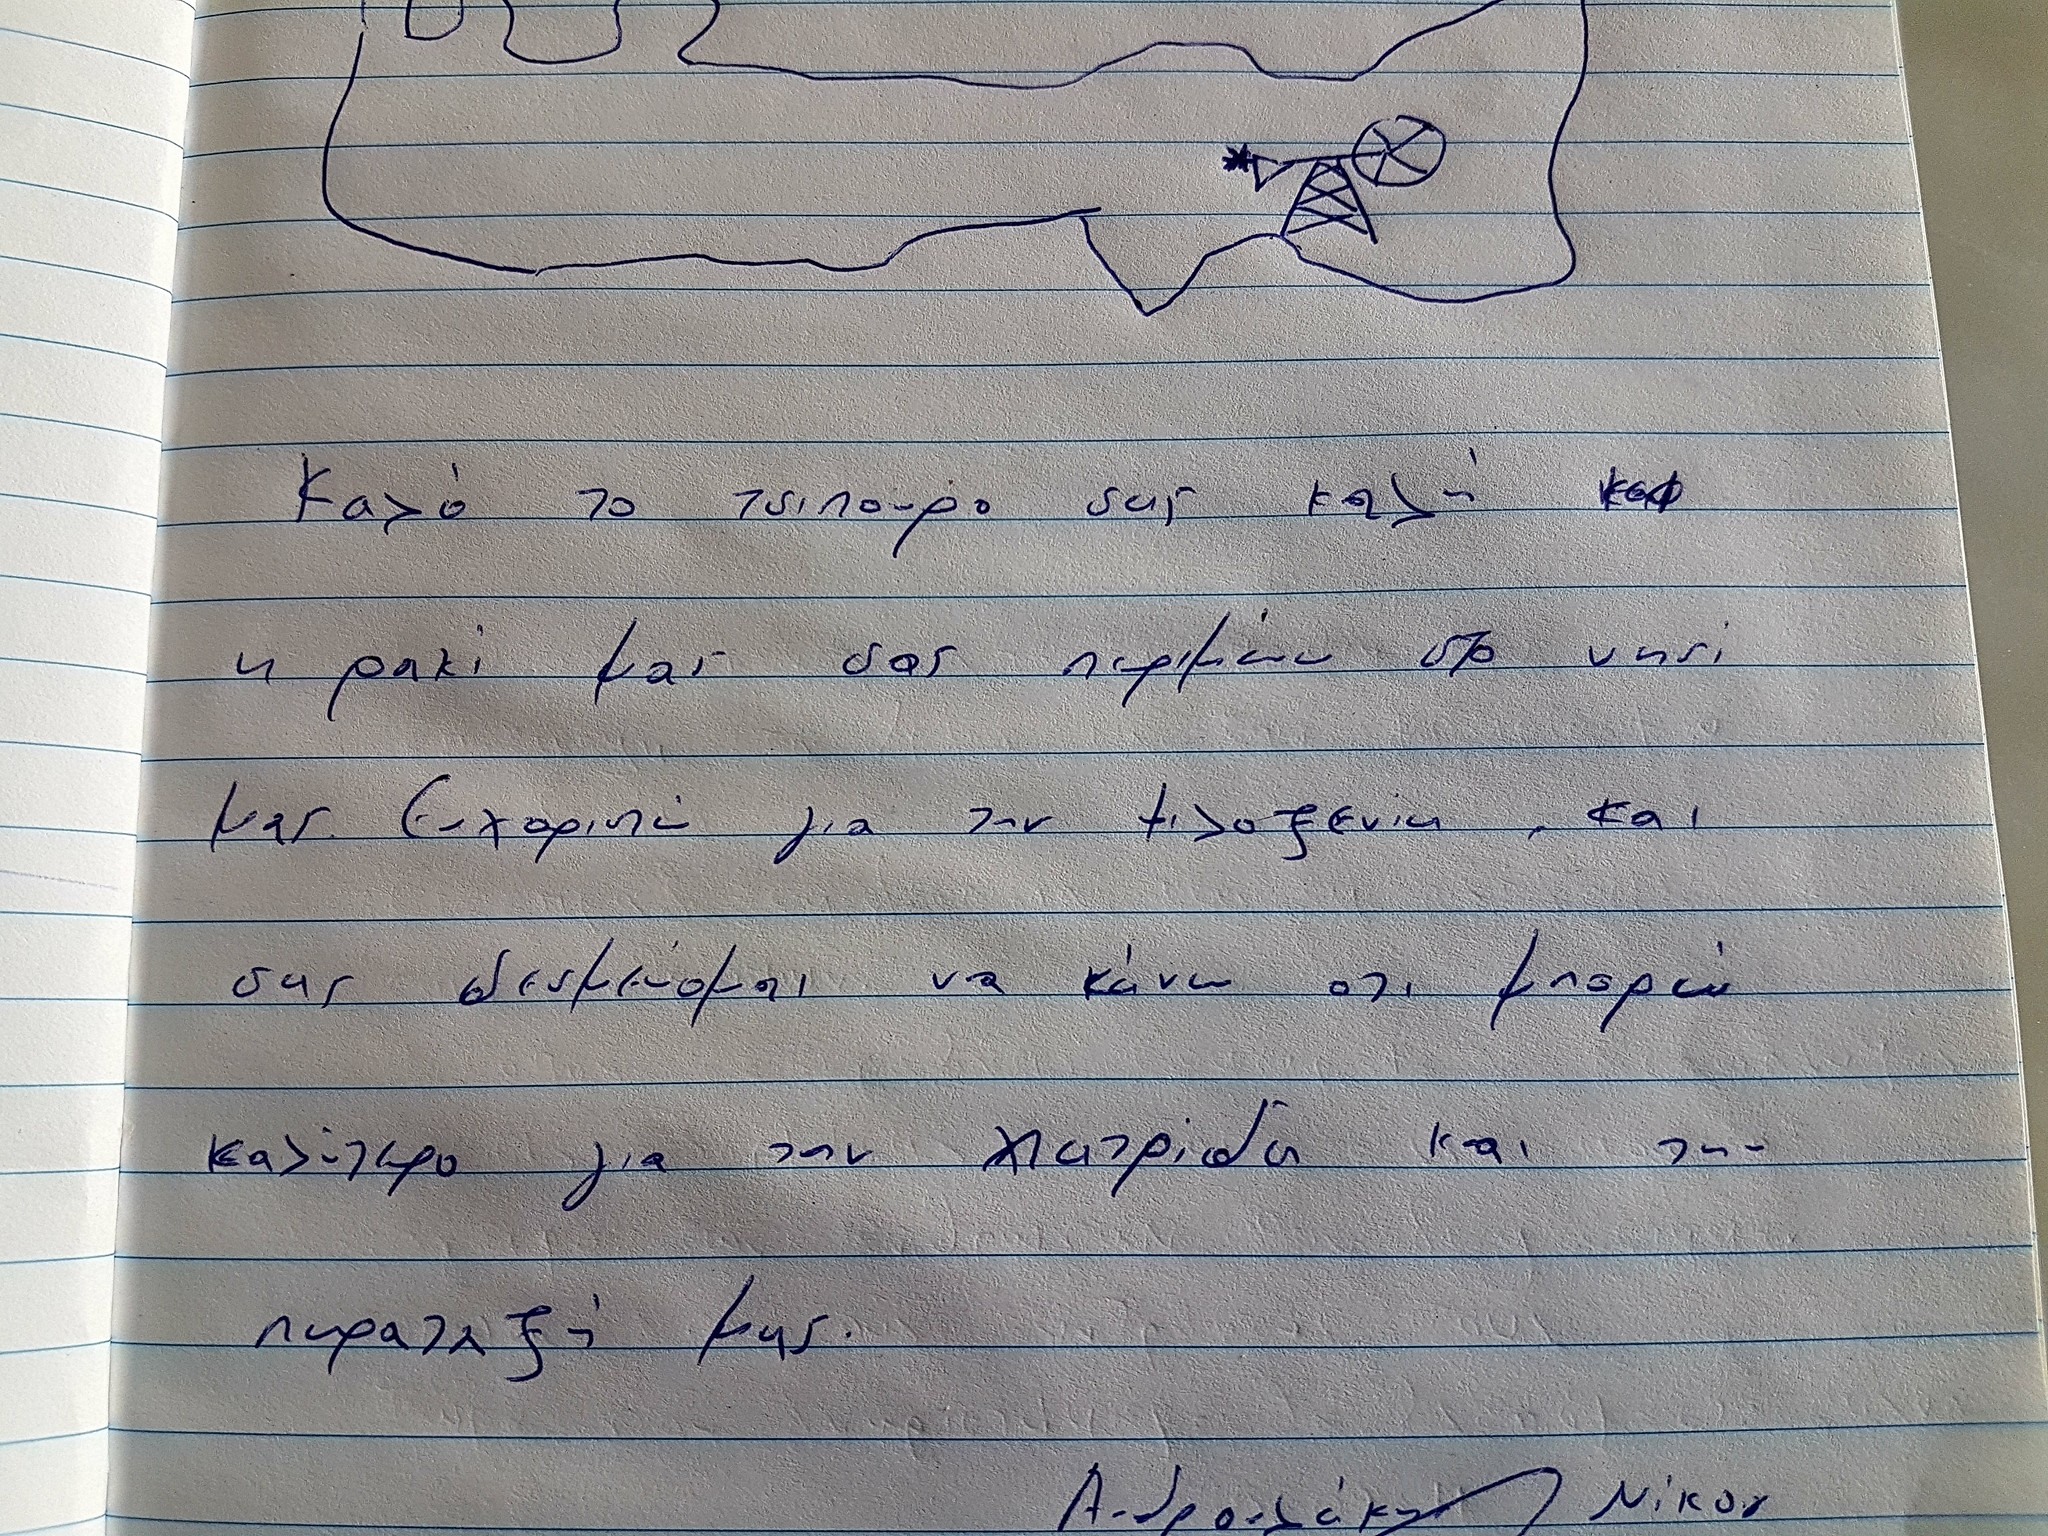 Καλό το τσιπουρο σας καλή
η ρακί μας σας περιμένω στο νησί
μας. Ευχαριστώ για την φιλοξενία, και
σας δεσμεύομαι να κάνω οτι μπορώ
καλύτερο για την πατρίδα και την
παράταξή μας.
Νίκος